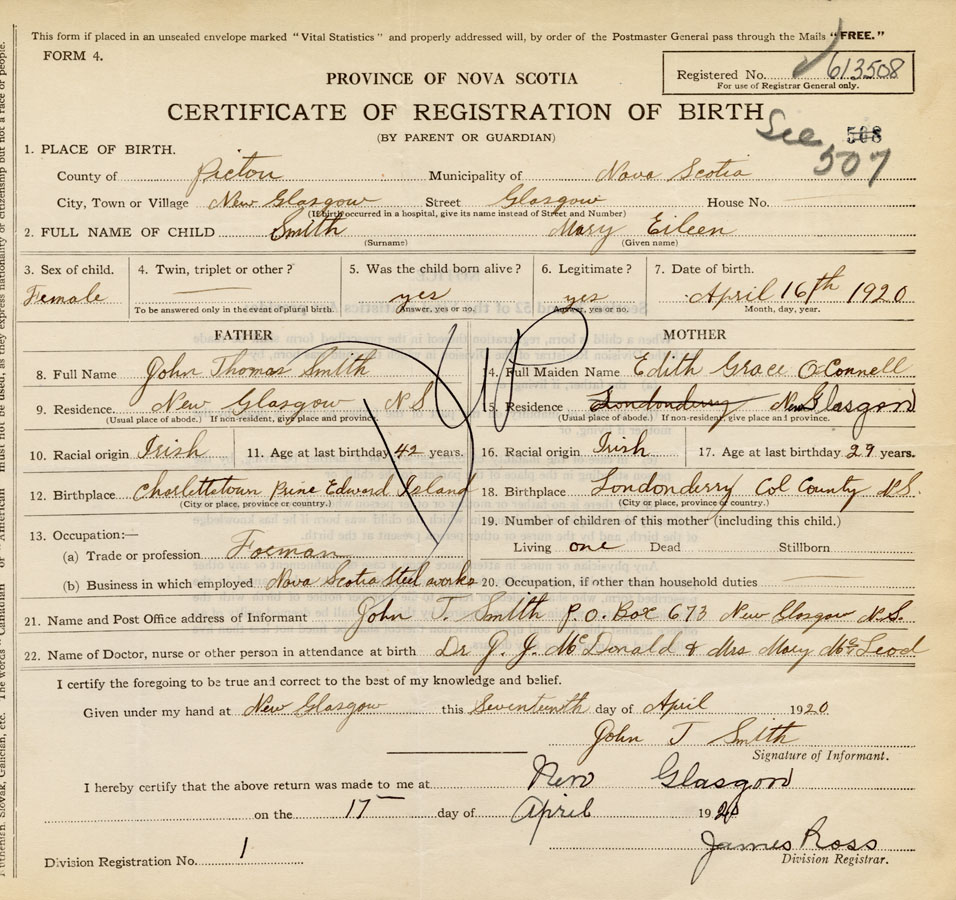 This form if placed in an unsealed envelope marked "Vital Statistics" and properly addressed will, by order of the Postmaster General pass through the Mails "FREE."
FORM 4.
Registered No. 613508
For use of Registrar General only.
PROVINCE OF NOVA SCOTIA
CERTIFICATE OF REGISTRATION OF BIRTH
(BY PARENT OR GUARDIAN)
See 508
507
1. PLACE OF BIRTH.
County of Picton Municipality of Nova Scotia
City, Town or Village New Glasgow Street Glasgow House No.
(If birth occurred in a hospital, give its name instead of Street and Number)
2. FULL NAME OF CHILD Smith Mary Eileen
(Surname) (Given name)
3. Sex of child. 4. Twin, triplet or other? 5. Was the child born alive? 6. Legitimate? 7. Date of birth.
Female yes yes April 16th 1920
To be answered only in the event of plural birth. Answer, yes or no. Answer, yes or no. Month, day, year.
FATHER MOTHER
8. Full Name John Thomas Smith 14. Full Maiden Name Edith Grace O'Connell
9. Residence New Glasgow N S 15. Residence Londonderry New Glasgow
(Usual place of abode.) If non-resident, give place and province. (Usual place of abode.) If non-resident, give place and province.
10. Racial origin Irish 11. Age at last birthday 42 years. 16. Racial origin Irish 17. Age at last birthday 29 years.
12. Birthplace Charlettetown Prine Edward Island 18. Birthplace Londonderry Col County N S.
(City or place, province or country.) (City or place, province or country.)
13. Occupation:— 19. Number of children of this mother (including this child.)
(a) Trade or profession Foeman Living one Dead Stillborn
(b) Business in which employed Nova Scotia Steel works 20. Occupation, if other than household duties
21. Name and Post Office address of Informant John T. Smith P.O. Box 673 New Glasgow N.S.
22. Name of Doctor, nurse or other person in attendance at birth Dr J. J. McDonald & Mrs Mary McLeod
I certify the foregoing to be true and correct to the best of my knowledge and belief.
Given under my hand at New Glasgow this Seventeenth day of April 1920
John T Smith
Signature of Informant.
I hereby certify that the above return was made to me at New Glasgow
on the 17 day of April 1920
James Ross
Division Registration No. 1 Division Registrar.